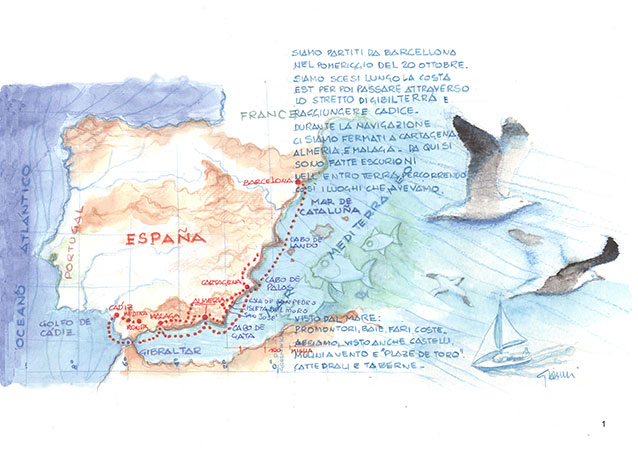 SIAMO PARTITI DA BARCELLONA
NEL POMERIGGIO DEL 20 OTTOBRE.
SIAMO SCESI LUNGO LA COSTA
EST PER POI PASSARE ATTRAVERSO
LO STRETTO DI GIBILTERRA E
RAGGIUNGERE CADICE.
DURANTE LA NAVIGAZIONE
CI SIAMO FERMATI A CARTAGENA,
ALMERIA E MALAGA - DA QUI SI
SONO FATTE ESCURIONI
NELL'ENTRO TERRA, PERCORRENDO
COSÌ I LUOGHI CHE AVEVAMO
VISTO DAL MARE:
PROMONTORI, BAIE, FARI, COSTE.
MULINI A VENTO E "PLAZE DE TORO"
CATTEDRALI E TABERNE.
FRANCE
OCEANO ATLANTICO
PORTUGAL
ESPAÑA
BARCELONA
MAR DE
CATALUÑA
MEDITERRANEO
CABO DE
CARTAGENA
CABO DE
PALOS
ALMERIA
ISLETA DEL MORO
SAN JOSÈ
CABO DE
GATA
MALAGA
RONDA
MEDINA
CADIZ
GOLFO DE
CÁDIZ
GIBRALTAR
8°
6°
MIGLIA
1